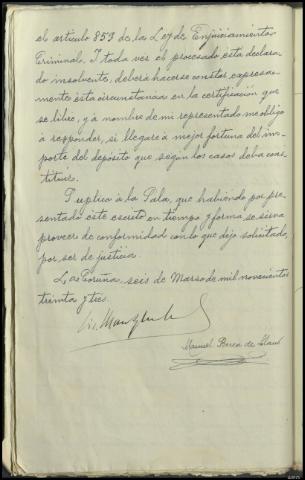 el artículo 853 de la Ley de Enjuiciamiento
Criminal. Y toda vez el procesado está declara-
do insolvente, deberá hacerse constar expresa-
mente ésta circunstancia en la certificación que
se libre, y á nombre de mi representado me obligo
á responder, si llegare á mejor fortuna del im-
porte del depósito que según los casos deba cons-
tituirse.
Suplico á la Sala, que habiendo por pre-
sentado éste escrito en tiempo y forma, se sirva
proveer de conformidad con lo que dejo solicitado,
por ser de justicia.
La Coruña, seis de Marzo de mil novecientos
treinta y tres.
Manuel